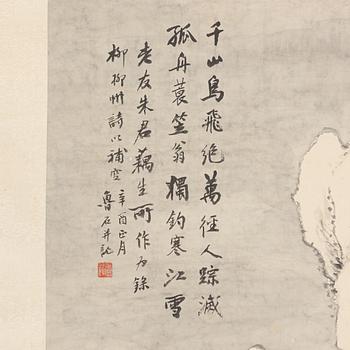 千山鳥飛絶萬徑人踪滅
孤舟蓑笠翁獨釣寒江雪
老友朱君藕生所作為録
柳柳州詩以補空辛酉正月
魯石并記